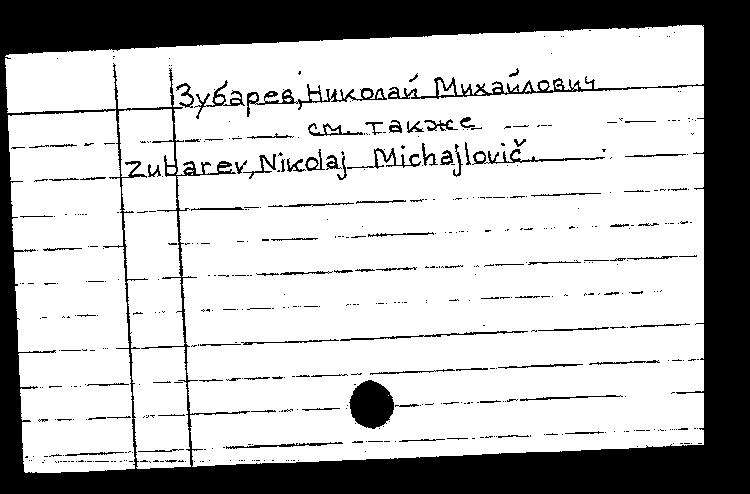 Зубарев, Николай Михайлович
см. также
Zubarev, Nikolaj Michajlovič.